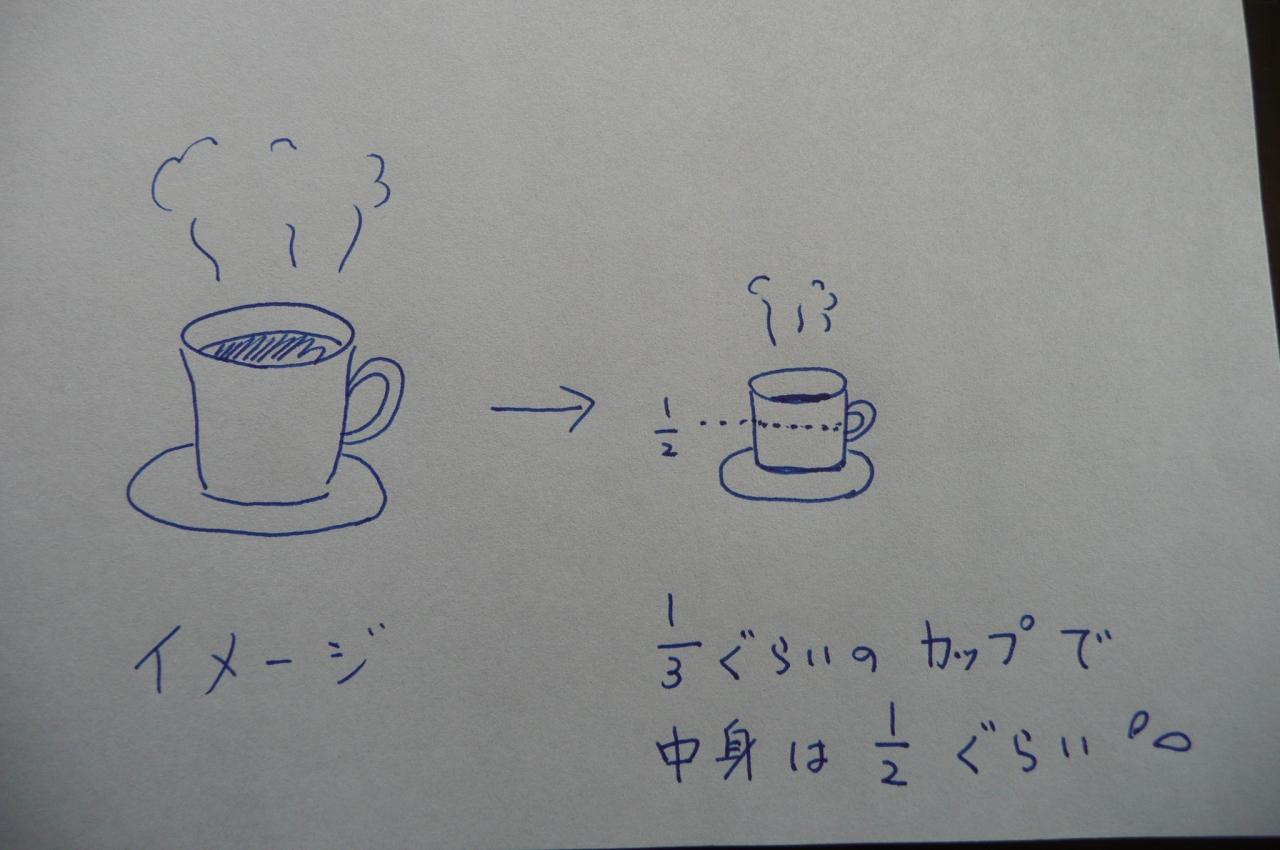 1/2
イメージ
1/3ぐらいのカップで
中身は1/2ぐらい。